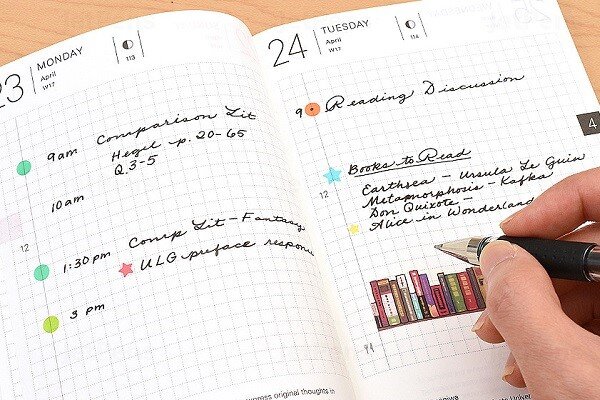 23
MONDAY
April
W17
113
9am Comparison Lit
Hegel p. 20-65
Q.3-5
10am
12
1:30 pm Comp Lit-Fantasy
ULG preface
3 pm
original thoughts in
24
TUESDAY
April
W17
114
9 Reading Discussion
4
Books to Read
12
Earthsea - Ursula Le Guin
Metamorphosis - Kafka
Don Quixote -
Alice in Wonderland